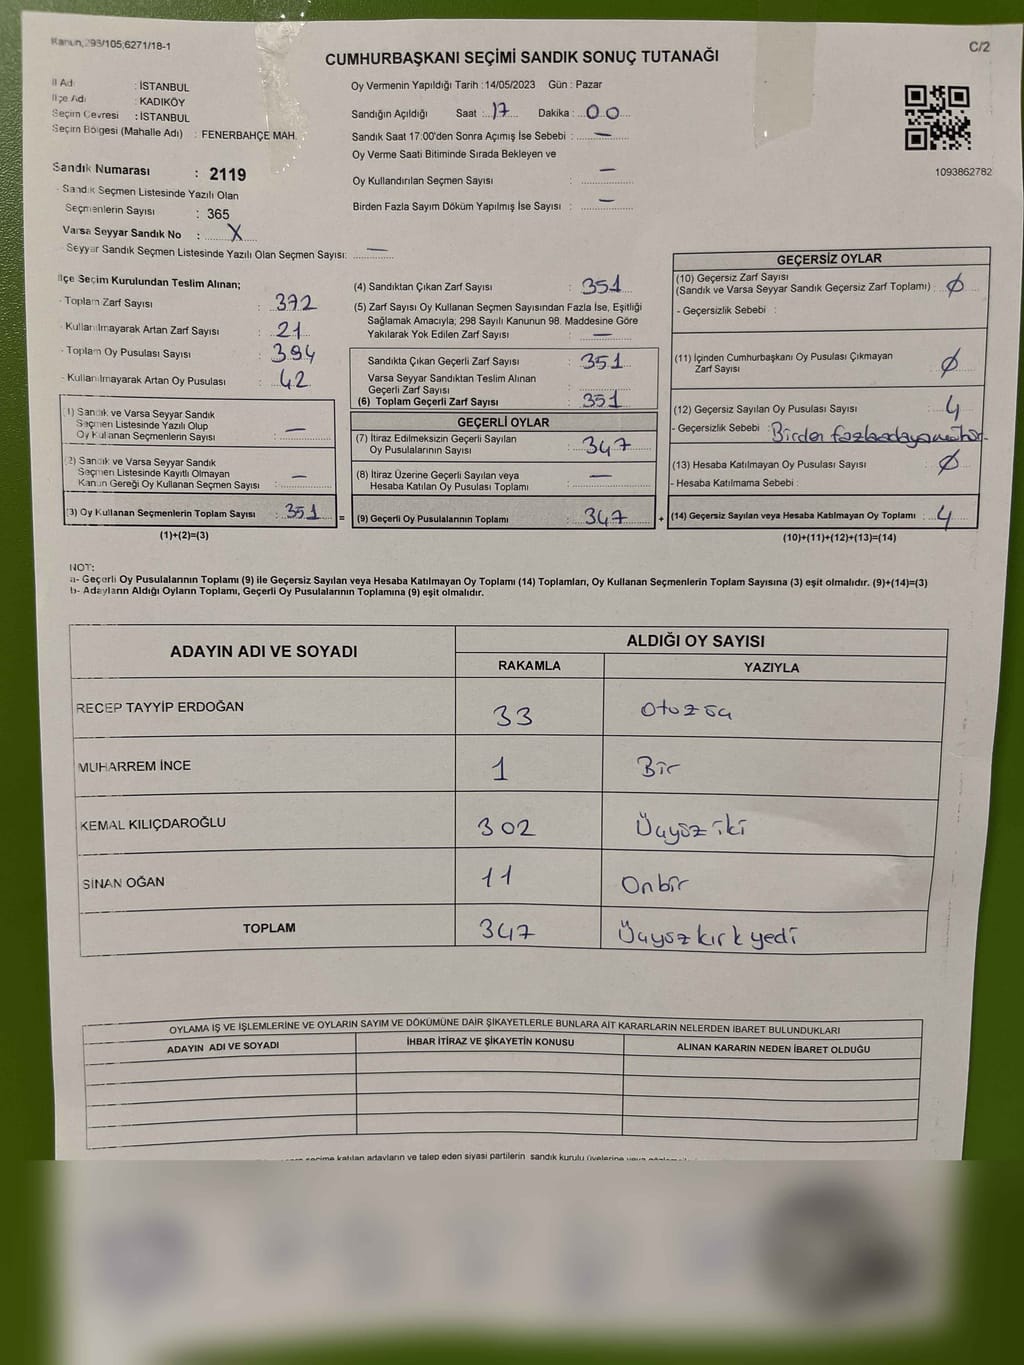 Kanun,298/105,6271/18-1
C/2
CUMHURBAŞKANI SEÇİMİ SANDIK SONUÇ TUTANAĞI
İl Adı : İSTANBUL
İlçe Adı : KADIKÖY
Seçim Çevresi : İSTANBUL
Seçim Bölgesi (Mahalle Adı) : FENERBAHÇE MAH.
Oy Vermenin Yapıldığı Tarih : 14/05/2023 Gün : Pazar
Sandığın Açıldığı Saat : 17 Dakika : 00
Sandık Saat 17:00'den Sonra Açımış İse Sebebi : —
Oy Verme Saati Bitiminde Sırada Bekleyen ve
Oy Kullandırılan Seçmen Sayısı : —
Birden Fazla Sayım Döküm Yapılmış İse Sayısı : —
1093862782
Sandık Numarası : 2119
- Sandık Seçmen Listesinde Yazılı Olan
Seçmenlerin Sayısı : 365
Varsa Seyyar Sandık No : X
- Seyyar Sandık Seçmen Listesinde Yazılı Olan Seçmen Sayısı: —
İlçe Seçim Kurulundan Teslim Alınan;
- Toplam Zarf Sayısı : 372
- Kullanılmayarak Artan Zarf Sayısı : 21
- Toplam Oy Pusulası Sayısı : 394
- Kullanılmayarak Artan Oy Pusulası : 42
1) Sandık ve Varsa Seyyar Sandık
Seçmen Listesinde Yazılı Olup
Oy Kullanan Seçmenlerin Sayısı : —
(2) Sandık ve Varsa Seyyar Sandık
Seçmen Listesinde Kayıtlı Olmayan
Kanun Gereği Oy Kullanan Seçmen Sayısı : —
(3) Oy Kullanan Seçmenlerin Toplam Sayısı : 351 =
(1)+(2)=(3)
(4) Sandıktan Çıkan Zarf Sayısı : 351
(5) Zarf Sayısı Oy Kullanan Seçmen Sayısından Fazla İse, Eşitliği
Sağlamak Amacıyla; 298 Sayılı Kanunun 98. Maddesine Göre
Yakılarak Yok Edilen Zarf Sayısı : —
Sandıkta Çıkan Geçerli Zarf Sayısı : 351
Varsa Seyyar Sandıktan Teslim Alınan
Geçerli Zarf Sayısı :
(6) Toplam Geçerli Zarf Sayısı : 351
GEÇERLİ OYLAR
(7) İtiraz Edilmeksizin Geçerli Sayılan
Oy Pusulalarının Sayısı : 347
(8) İtiraz Üzerine Geçerli Sayılan veya
Hesaba Katılan Oy Pusulası Toplamı : —
(9) Geçerli Oy Pusulalarının Toplamı : 347 +
GEÇERSİZ OYLAR
(10) Geçersiz Zarf Sayısı
(Sandık ve Varsa Seyyar Sandık Geçersiz Zarf Toplamı) : Ø
- Geçersizlik Sebebi :
(11) İçinden Cumhurbaşkanı Oy Pusulası Çıkmayan
Zarf Sayısı : Ø
(12) Geçersiz Sayılan Oy Pusulası Sayısı : 4
- Geçersizlik Sebebi : Birden fazla adaya mühür
(13) Hesaba Katılmayan Oy Pusulası Sayısı : Ø
- Hesaba Katılmama Sebebi :
(14) Geçersiz Sayılan veya Hesaba Katılmayan Oy Toplamı : 4
(10)+(11)+(12)+(13)=(14)
NOT:
a- Geçerli Oy Pusulalarının Toplamı (9) ile Geçersiz Sayılan veya Hesaba Katılmayan Oy Toplamı (14) Toplamları, Oy Kullanan Seçmenlerin Toplam Sayısına (3) eşit olmalıdır. (9)+(14)=(3)
b- Adayların Aldığı Oyların Toplamı, Geçerli Oy Pusulalarının Toplamına (9) eşit olmalıdır.
ADAYIN ADI VE SOYADI ALDIĞI OY SAYISI
RAKAMLA YAZIYLA
RECEP TAYYİP ERDOĞAN 33 Otuzüç
MUHARREM İNCE 1 Bir
KEMAL KILIÇDAROĞLU 302 Üçyüz iki
SİNAN OĞAN 11 Onbir
TOPLAM 347 Üçyüz kırk yedi
OYLAMA İŞ VE İŞLEMLERİNE VE OYLARIN SAYIM VE DÖKÜMÜNE DAİR ŞİKAYETLERLE BUNLARA AİT KARARLARIN NELERDEN İBARET BULUNDUKLARI
ADAYIN ADI VE SOYADI İHBAR İTİRAZ VE ŞİKAYETİN KONUSU ALINAN KARARIN NEDEN İBARET OLDUĞU
seçime katılan adayların ve talep eden siyasi partilerin sandık kurulu üyelerine veya